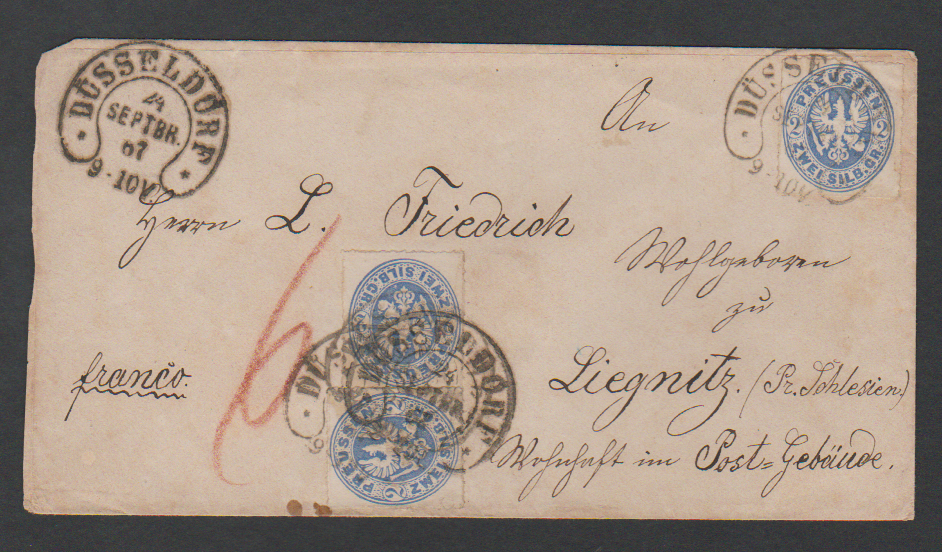 DÜSSELDORF
24
SEPTBR.
67
9-10V.
DÜSSEL
9-10V
PREUSSEN
2 2
ZWEI SILB.GR.
An
Herrn L. Friedrich
Wohlgeboren
zu
Liegnitz. (Pr. Schlesien.)
Wohnhaft im Post=Gebäude.
franco.
6
ZWEI SILB.GR.
DÜSSELDORF
24
SEPTBR.
67
9
PREUSSEN
2
ZWEI SILB.